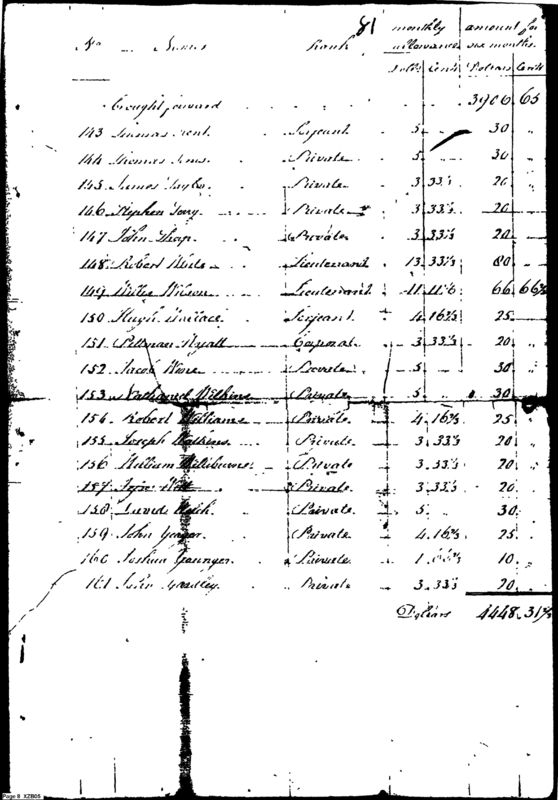 81
No Names Rank monthly allowance amount for six months
Dolls Cents Dollars Cents
brought forward 3906 65
143 Serjeant 5 30
144 Thomas Private 5 30
145 James Taylor Private 3 33⅓ 20
146 Stephen Terry Private 3 33⅓ 20
147 John Private 3 33⅓ 20
148 Robert Lieutenant 13 33⅓ 80
149 Willis Wilson Lieutenant 11 11⅙ 66 66⅔
150 Hugh Wallace Serjeant 4 16⅔ 25
151 Pittman Wyatt Corporal 3 33⅓ 20
152 Jacob Wine Private 5 30
153 Nathaniel Wilkins Private 5 30
154 Robert Williams Private 4 16⅔ 25
155 Joseph Watkins Private 3 33⅓ 20
156 William Private 3 33⅓ 20
157 Private 3 33⅓ 20
158 David Welch Private 5 30
159 John Private 4 16⅔ 25
160 Joshua Private 1 66⅔ 10
161 John Private 3 33⅓ 20
Dollars 4448 31⅔
Page 8 XZB05